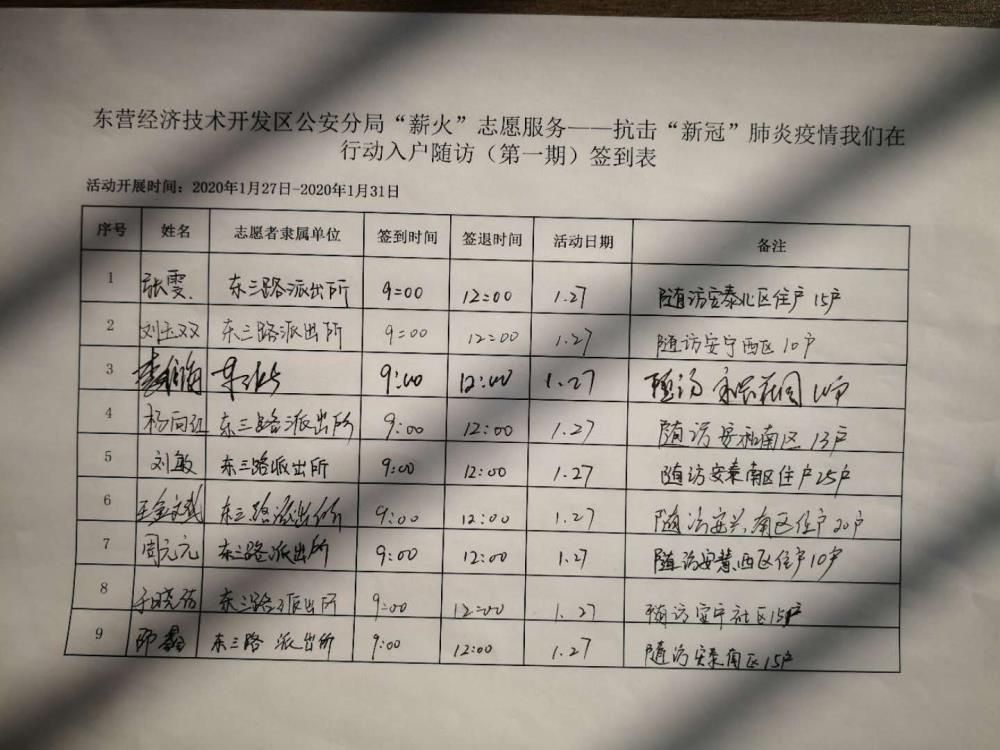 东营经济技术开发区公安分局“薪火”志愿服务——抗击“新冠”肺炎疫情我们在
行动入户随访（第一期）签到表
活动开展时间：2020年1月27日-2020年1月31日
序号 姓名 志愿者隶属单位 签到时间 签退时间 活动日期 备注
1 张雯 东三路派出所 9:00 12:00 1.27 随访安泰北区住户15户
2 刘玉双 东三路派出所 9:00 12:00 1.27 随访安宁西区10户
3 9:00 12:00 1.27 随访
4 杨向红 东三路派出所 9:00 12:00 1.27 随访安和南区13户
5 刘敏 东三路派出所 9:00 12:00 1.27 随访安泰南区住户25户
6 王金文斌 东三路派出所 9:00 12:00 1.27 随访安兴南区住户20户
7 周元元 东三路派出所 9:00 12:00 1.27 随访安慧西区住户10户
8 东三路派出所 9:00 12:00 1.27 随访安宁社区15户
9 邵鑫 东三路派出所 9:00 12:00 1.27 随访安泰南区15户